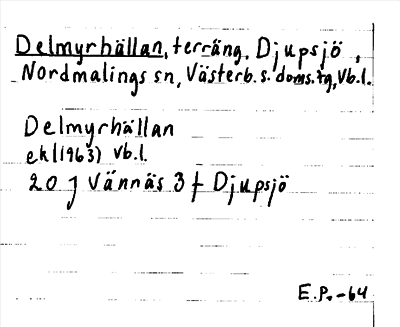 Delmyrhällan, terräng, Djupsjö,
Nordmalings sn, Västerb. s. doms. tg, Vb.l.
Delmyrhällan
ek (1963) Vb.l.
20 J Vännäs 3 f Djupsjö
E.P.-64